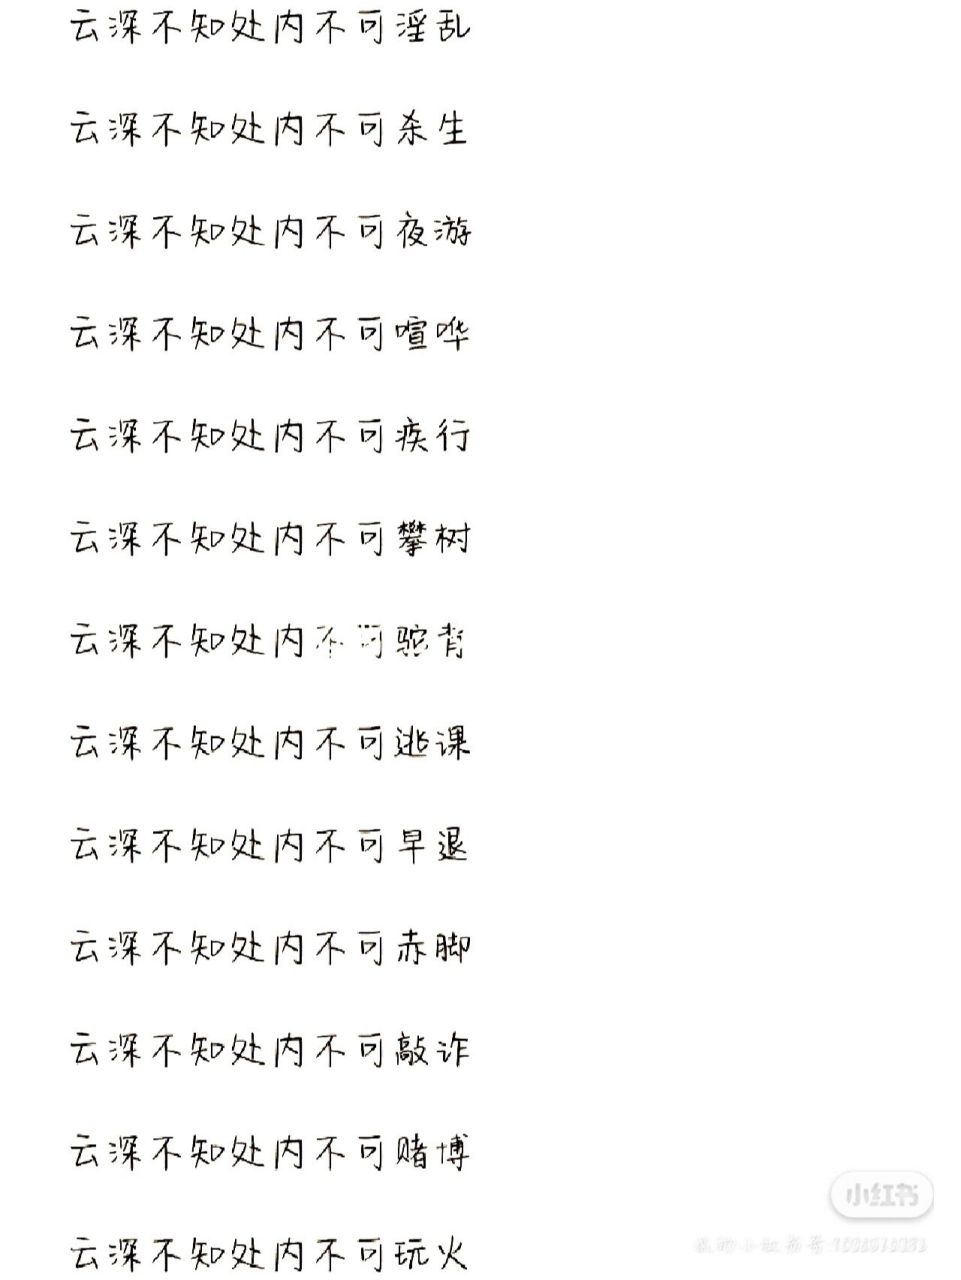 云深不知处内不可淫乱
云深不知处内不可杀生
云深不知处内不可夜游
云深不知处内不可喧哗
云深不知处内不可疾行
云深不知处内不可攀树
云深不知处内不可驼背
云深不知处内不可逃课
云深不知处内不可早退
云深不知处内不可赤脚
云深不知处内不可敲诈
云深不知处内不可赌博
云深不知处内不可玩火
小红书